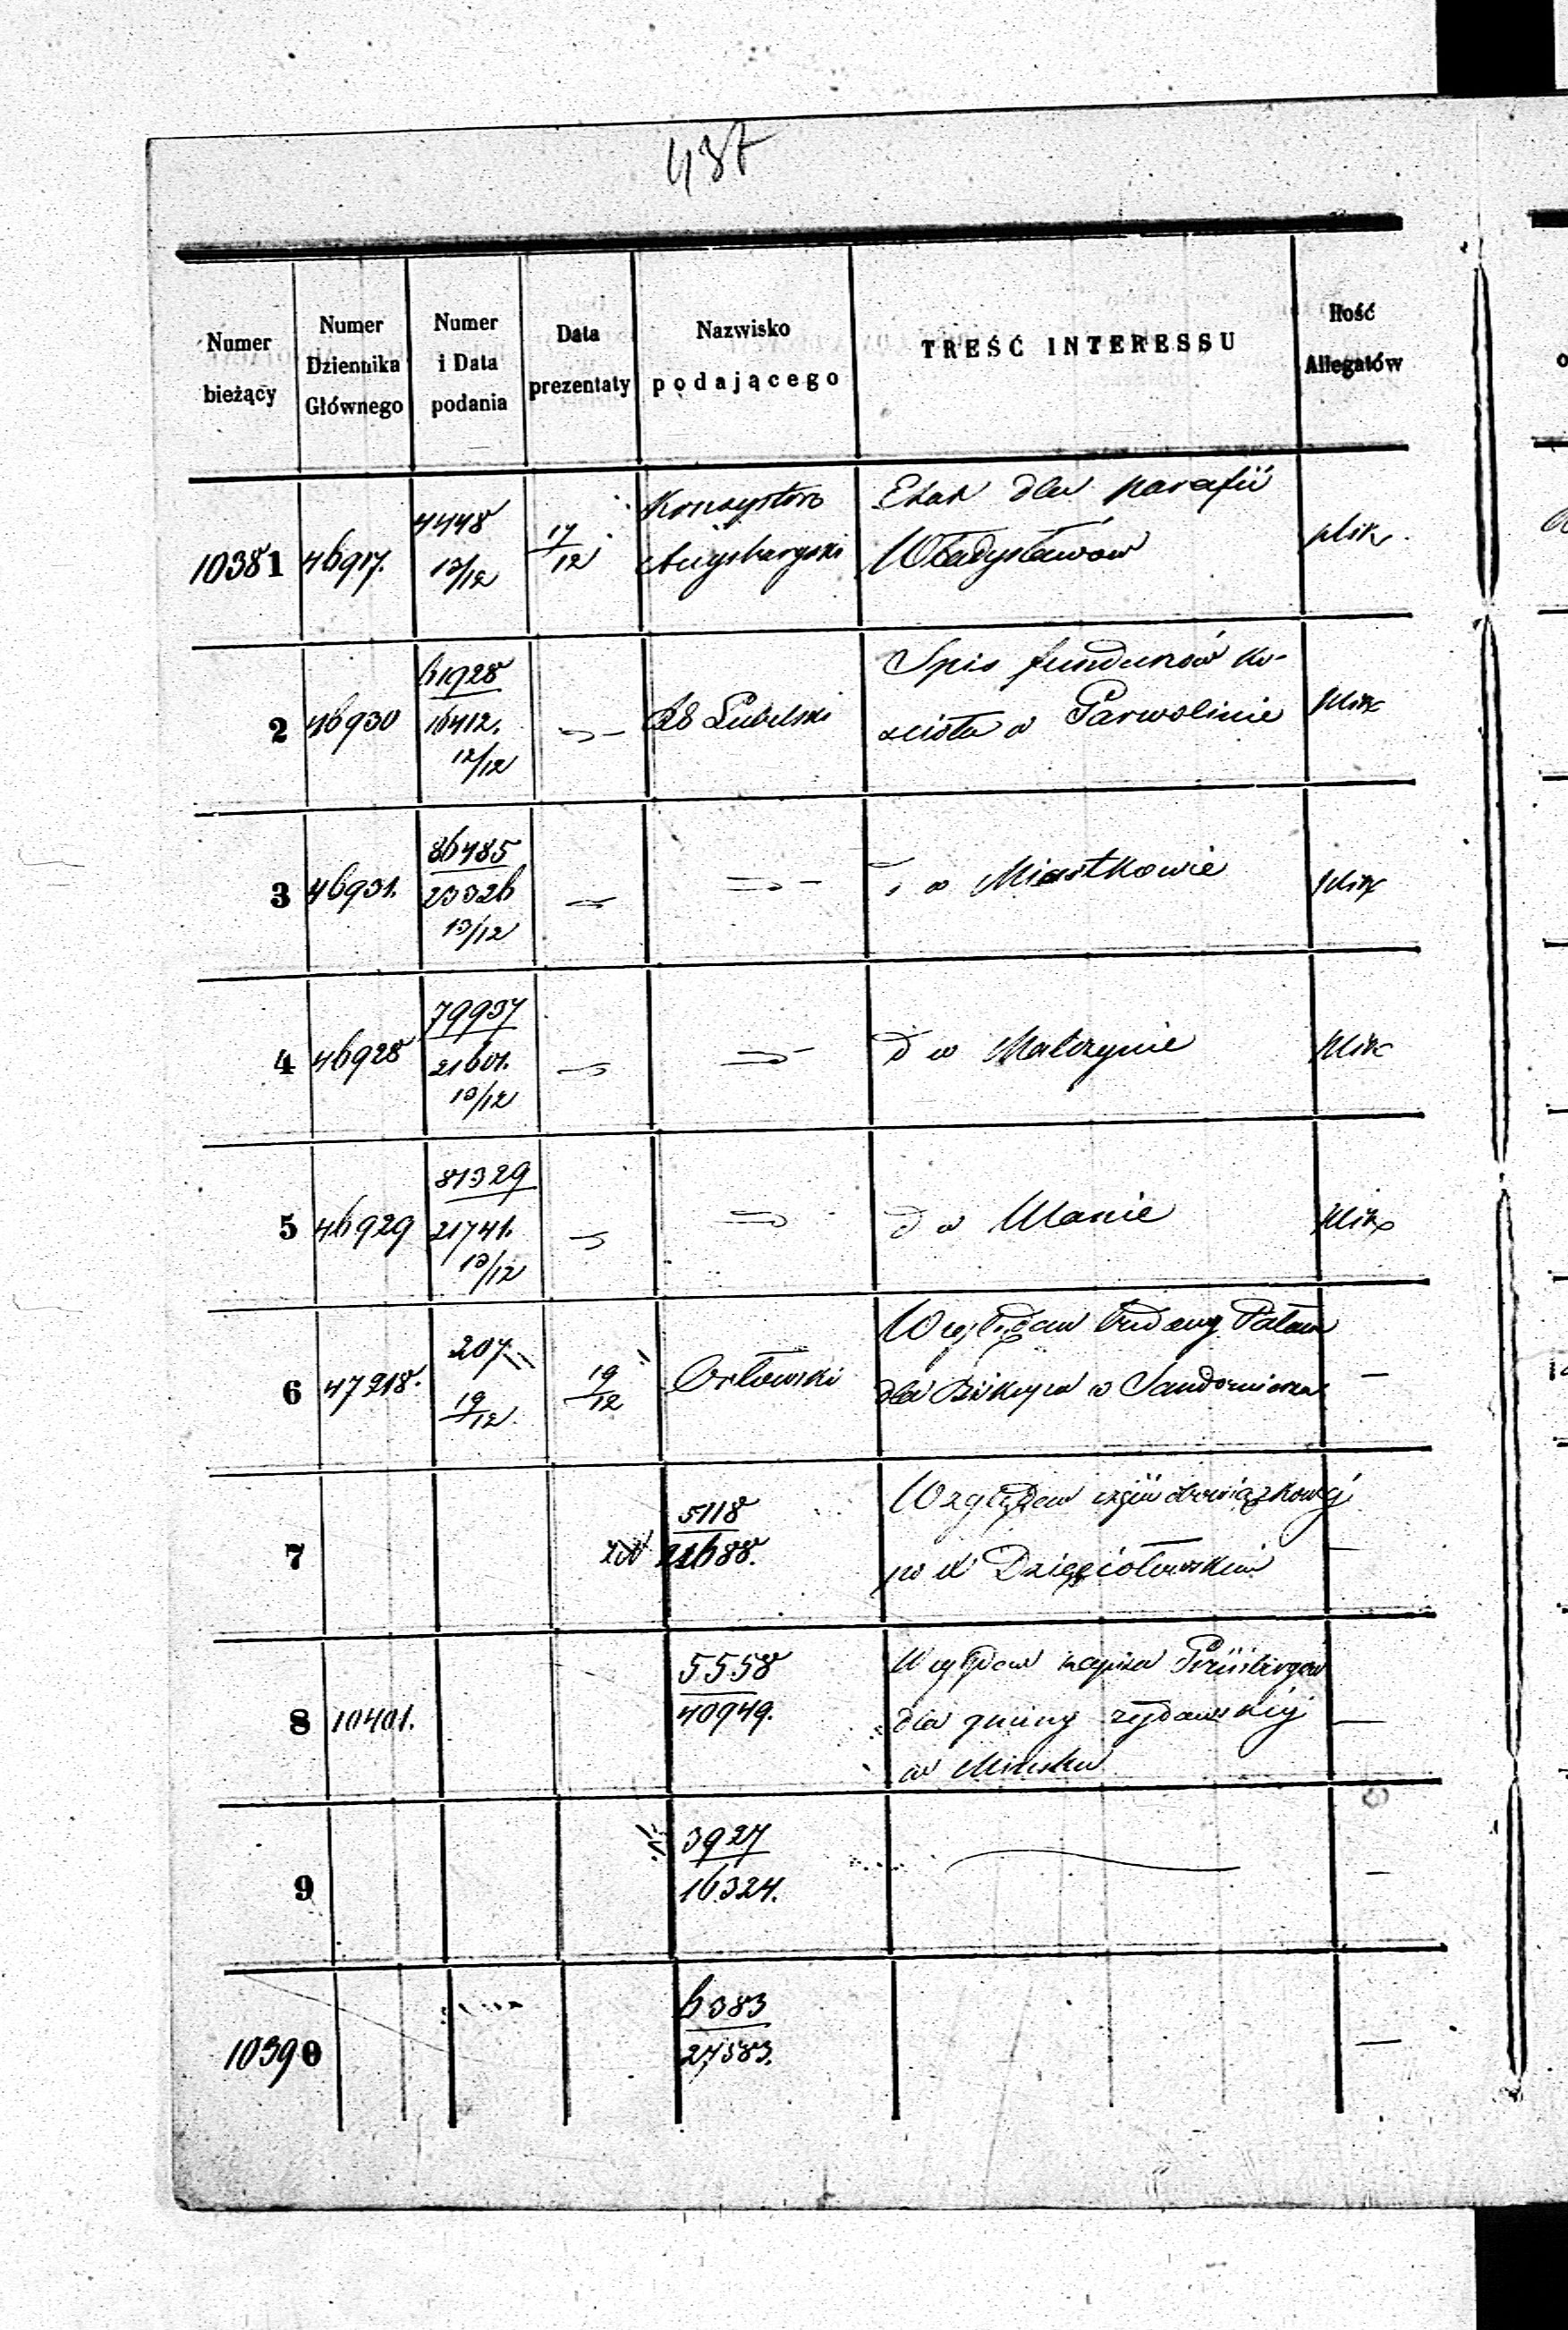 437
Numer bieżący
Numer Dziennika Głównego
Numer i Data podania
Data prezentaty
Nazwisko podającego
TREŚĆ INTERESSU
Ilość Allegatów
10381 46917. 4448 13/12 17/12 Konsystorz Etat dla parafii Władysławów plik.
2 46930 61928 16412. 12/12 Lubelski Spis funduszów ko-
ścioła w Garwolinie plik
3 46931. 86485 23326 13/12 w Miastkowie plik
4 46928 79937 21601. 13/12 d w Malczynie plik
5 46929 81329 21741. 13/12 d w Ulanie plik
6 47218. 207 19/12 19/12 Orłowski Względem budowy Pałacu
dla Biskupa w Sandomierzu —
7 5118 21688. Względem obowiązkowej
Dzięciołowskim —
8 10401. 5558 40949. Względem
dla gminy żydowskiej —
w Mińsku
9 3927 16324. —
10390 6383 27583. —